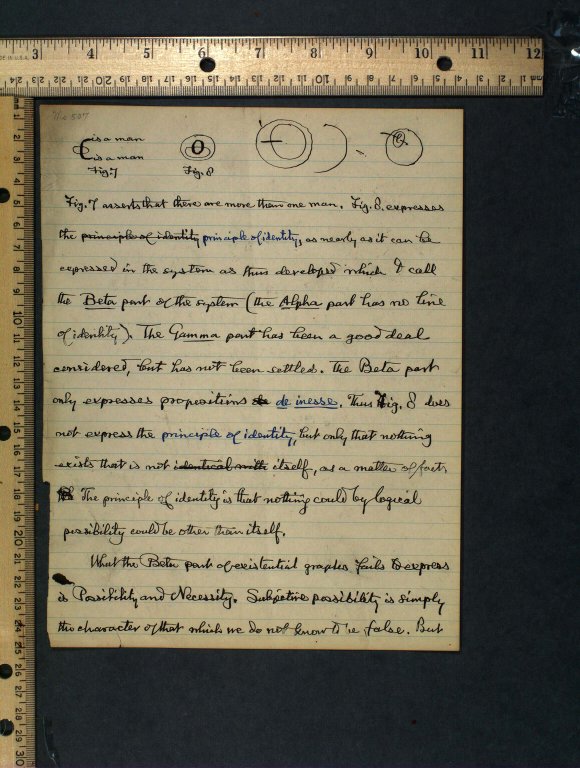 Ms 507
is a man
is a man
Fig. 7 Fig. 8
Fig. 7 asserts that there are more than one man. Fig. 8. expresses
the principle of identity principle of identity, as nearly as it can be
expressed in the system as thus developed which I call
the Beta part of the system (the Alpha part has no line
of identity). The Gamma part has been a good deal
considered, but has not been settled. The Beta part
only expresses propositions de inesse. Thus Fig. 8 does
not express the principle of identity, but only that nothing
exists that is not identical with itself, as a matter of fact.
The principle of identity is that nothing could by logical
possibility could be other than itself.
What the Beta part of existential graphs fails to express
is Possibility and Necessity. Subjective possibility is simply
the character of that which we do not know to be false. But